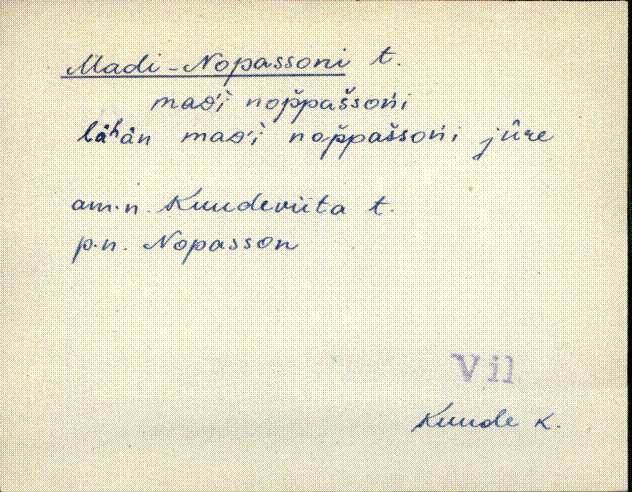 Madi-Nopassoni t.
maᴅ'i nop̆pašsońi
lähän maᴅ'i nop̆pašsońi jûre
am.n. Kuudeviita t.
p.n. Nopasson
Vil
Kuude k.